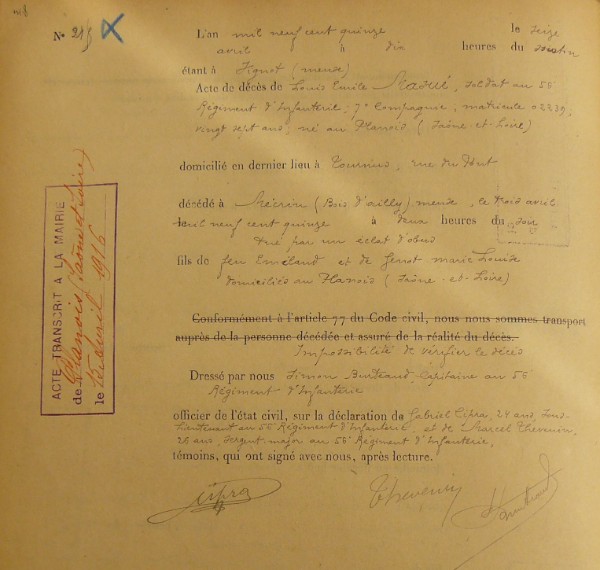 N° 218
L'an mil neuf cent quinze le seize
avril à dix heures du matin
étant à Vignot (meuse)
Acte de décès de Louis Emile soldat au 56
Régiment d'Infanterie, 7e Compagnie, matricule 02239,
vingt sept ans, né au Planois (Saône-et-Loire)
domicilié en dernier lieu à Tournus, rue du
décédé à Mécrin (Bois d'ailly) meuse, le trois avril
mil neuf cent quinze à deux heures du soir
tué par un éclat d'obus
fils de feu Emiland et de marie Louise
domiciliés au Planois (Saône-et-Loire)
Conformément à l'article 77 du Code civil, nous nous sommes transport
auprès de la personne décédée et assuré de la réalité du décès.
Impossibilité de vérifier le décès
Dressé par nous Simon Capitaine au 56
Régiment d'Infanterie
officier de l'état civil, sur la déclaration de Gabriel Cipra, 24 ans, Sous-
lieutenant au 56 Régiment d'Infanterie et de Marcel Thevenin,
26 ans, sergent major au 56e Régiment d'Infanterie,
témoins, qui ont signé avec nous, après lecture.
Cipra Thevenin
ACTE TRANSCRIT A LA MAIRIE
de Planois (Saône et Loire)
le avril 1916